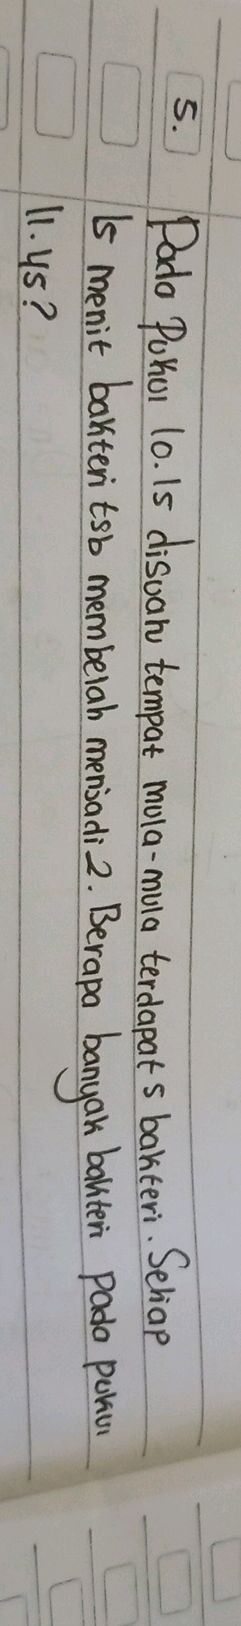 5. Pada Pukul 10.15 disuatu tempat mula-mula terdapat 5 bakteri. Setiap
15 menit bakteri tsb membelah menjadi 2. Berapa banyak bakteri pada pukul
11.45?